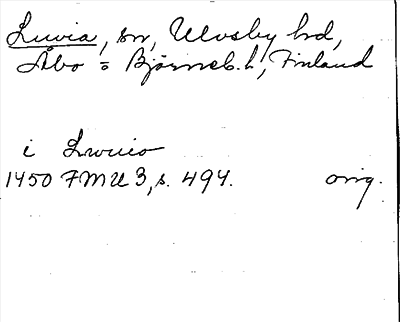 Luvia, sn, Ulvsby hd,
Åbo = Björneb. l, Finland
i Lwuio
1450 FMU 3, s. 494. orig.